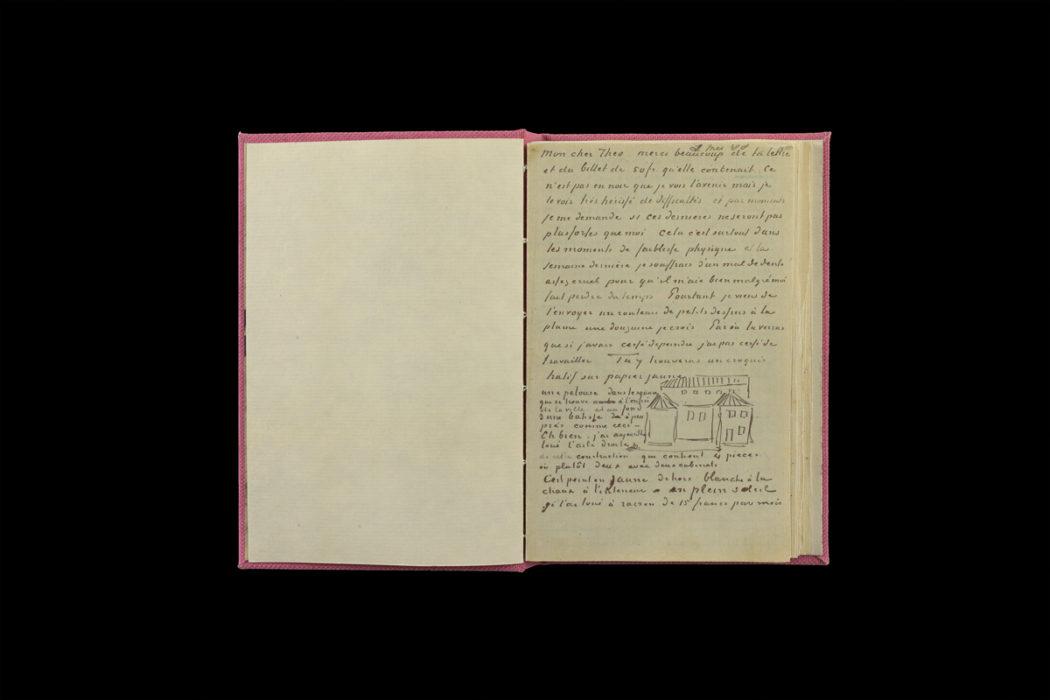 1 Mei 88
Mon cher Theo merci beaucoup de ta lettre
et du billet de 50 fr qu'elle contenait. Ce
n'est pas en noir que je vois l'avenir mais je
le vois très hérissé de difficultés et par moments
je me demande si ces dernières ne seront pas
plus fortes que moi Cela c'est surtout dans
les moments de faiblesse physique et la
semaine dernière je souffrais d'un mal de dents
assez cruel pour qu'il m'aie bien malgré moi
fait perdre du temps Pourtant je viens de
t'envoyer un rouleau de petits dessins à la
plume une douzaine je crois Par où tu verras
que si j'avais cessé de peindre j'ai pas cessé de
travailler Tu y trouveras un croquis
hatif sur papier jaune
une pelouse dans le square
qui se trouve à l'entrée
de la ville et au fond
d'une batisse à peu
près comme ceci –
Eh bien, j'ai aujourd'hui
loué l'aile droite
de cette construction qui contient 4 pièces
où plutôt deux avec deux cabinets
C'est peint en jaune dehors blanchi à la
chaux à l'intérieur en plein soleil
je l'ai loué à raison de 15 francs par mois